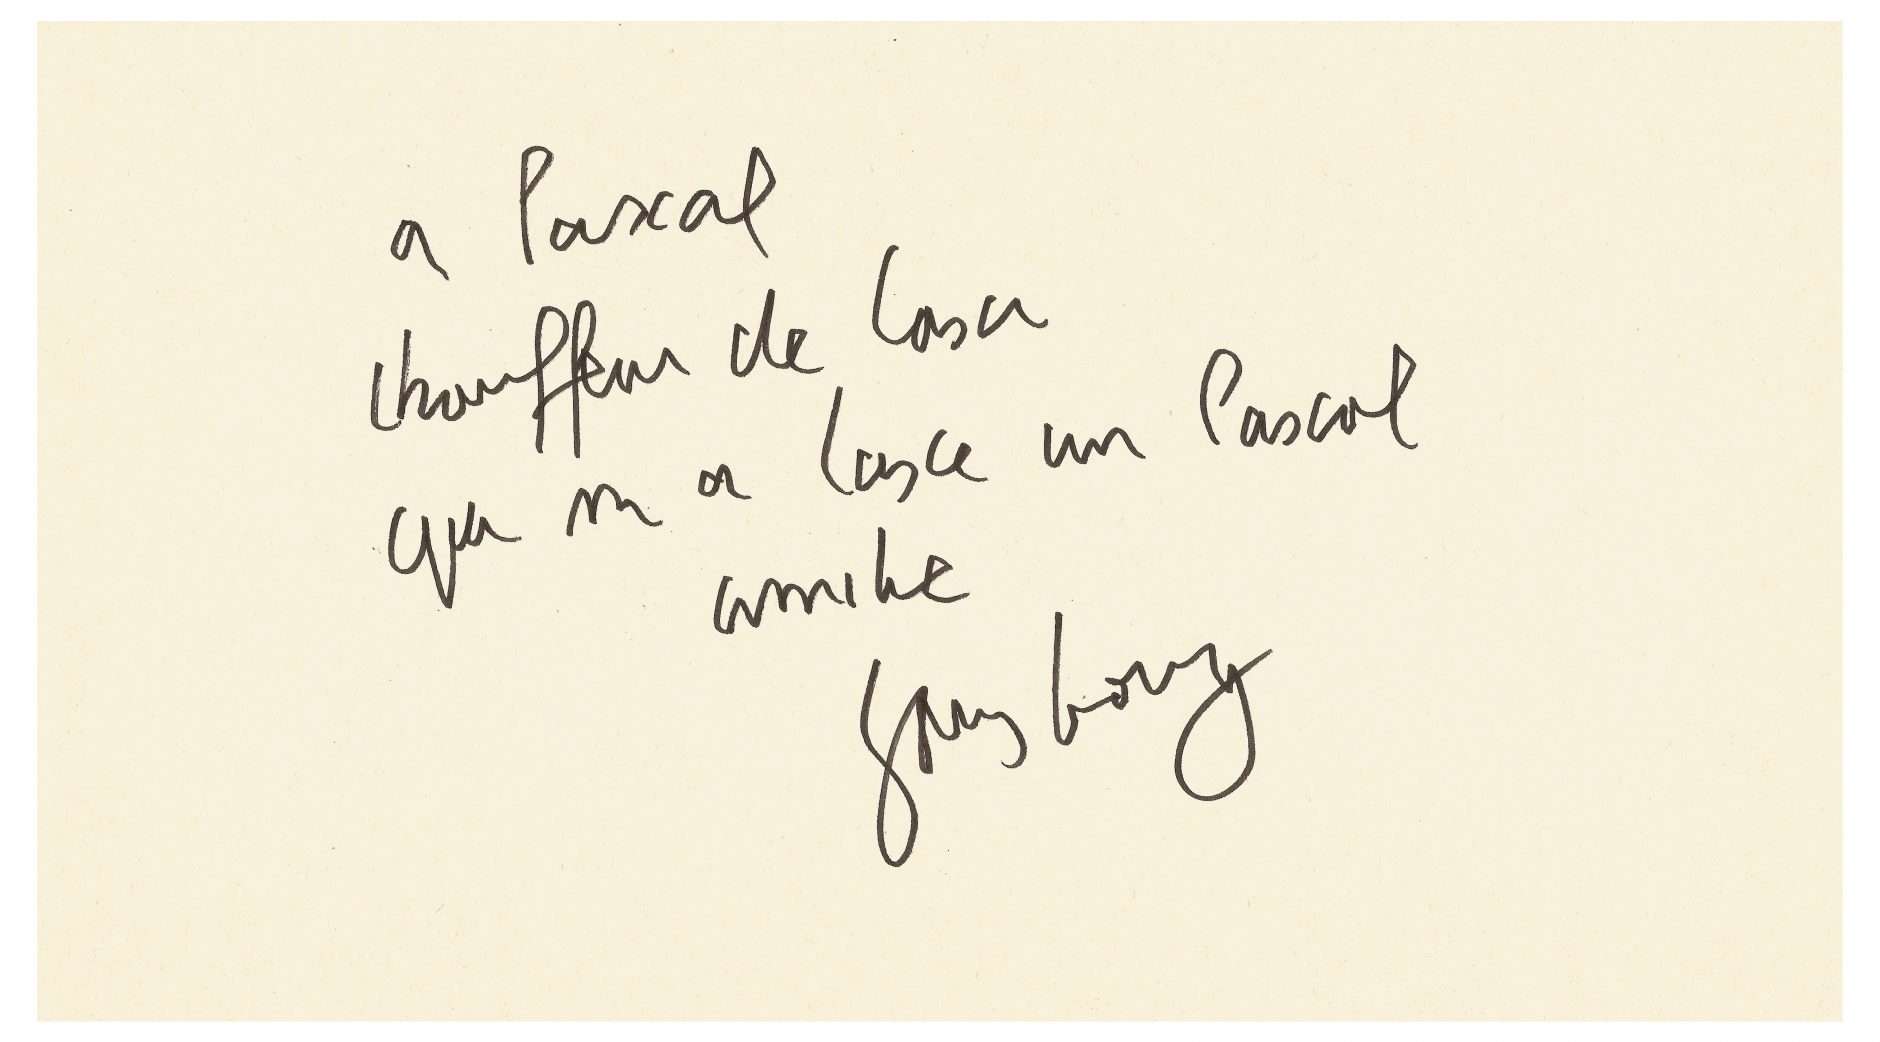 a Pascal
chauffeur de Casa
qui m a casce un Pascal
amitie
Gainsbourg